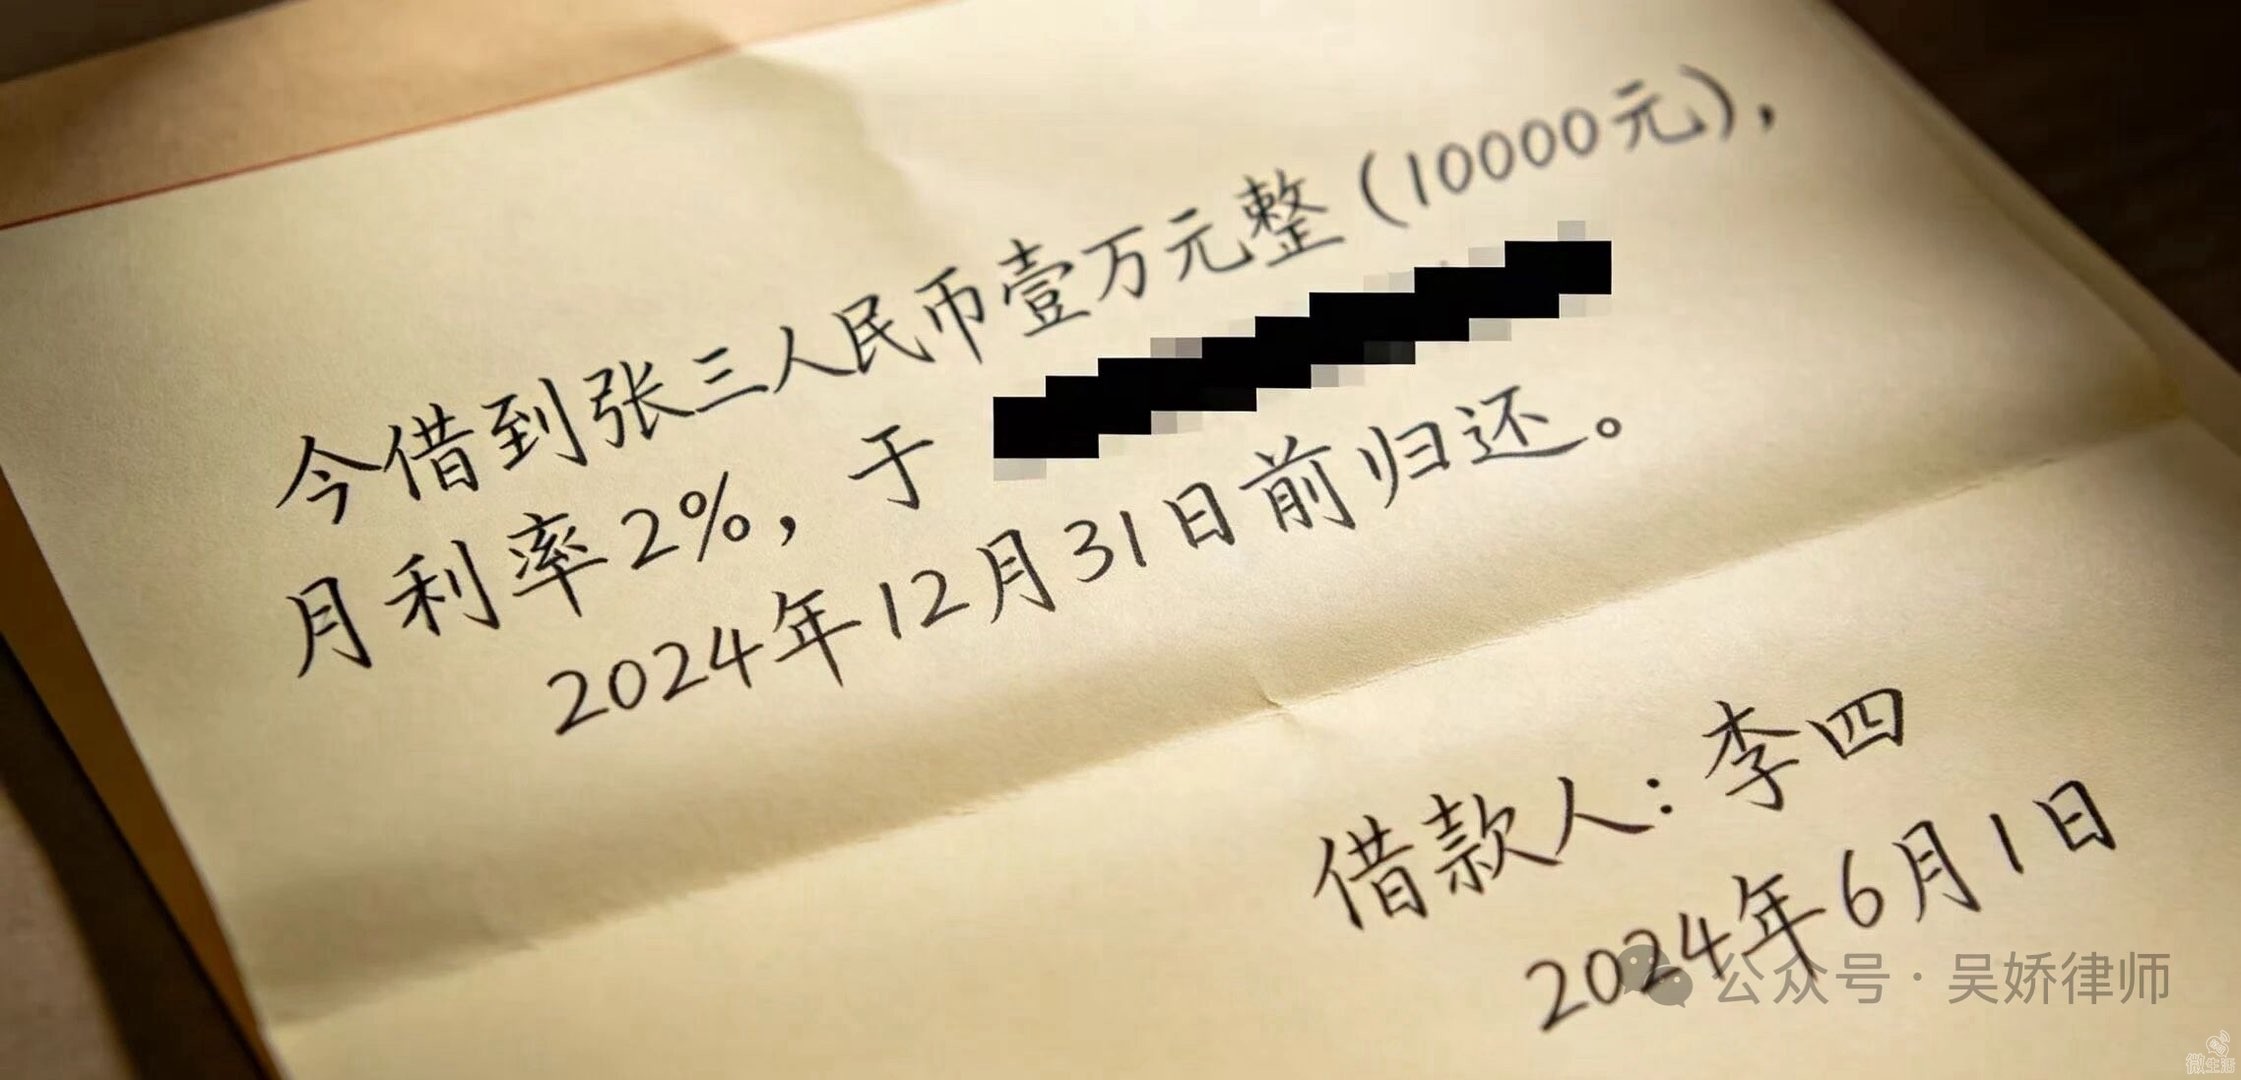 今借到张三人民币壹万元整(10000元),
月利率2%,于
2024年12月31日前归还。
借款人:李四
2024年6月1日
公众号·吴娇律师
微生活